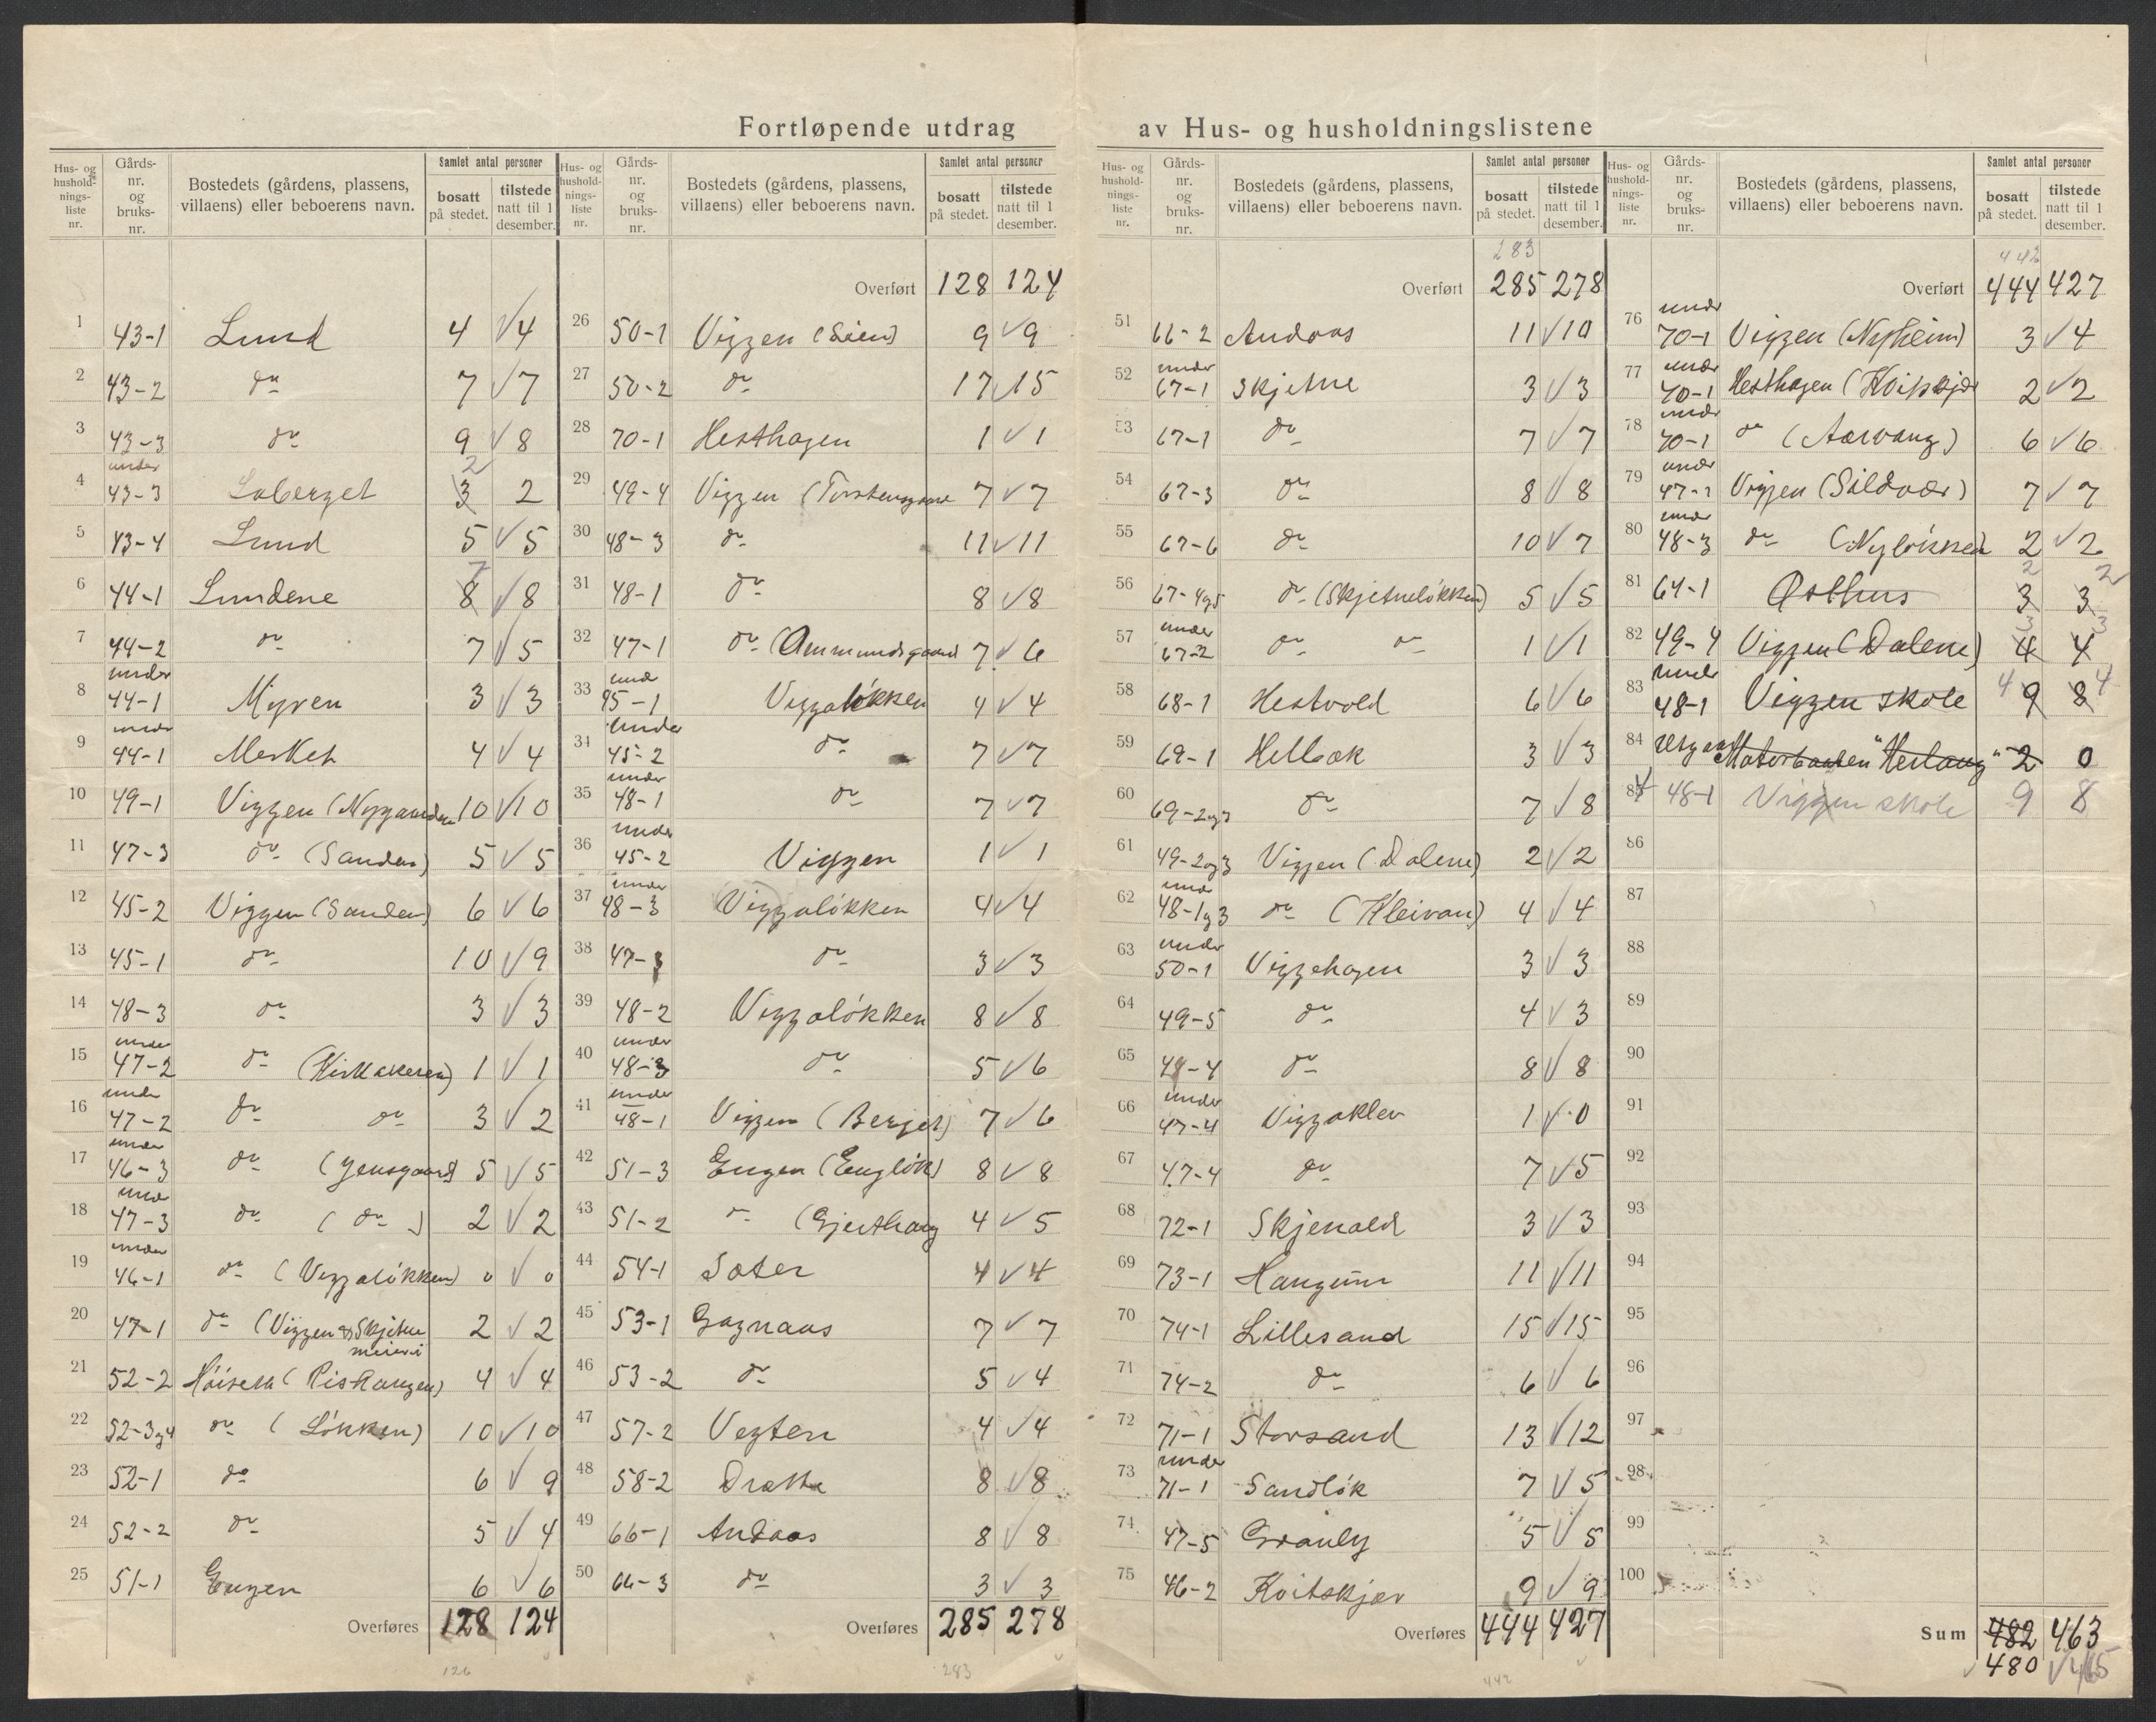 Fortløpende utdrag av Hus- og husholdningslistene
Hus- og hushold- nings- liste nr. Gårds- nr. og bruks- nr. Bostedets (gårdens, plassens, villaens) eller beboerens navn. Samlet antal personer bosatt på stedet. tilstede natt til 1 desember.
1 43-1 Lund 4 √ 4
2 43-2 do 7 √ 7
3 43-3 do 9 √ 8
4 under 43-3 Loberget 3 2 2
5 43-4 Lund 5 √ 5
6 44-1 Lundene 8 7 √ 8
7 44-2 do 7 √ 5
8 under 44-1 Myren 3 √ 3
9 under 44-1 Merket 4 √ 4
10 49-1 Viggen (Nygaarden 10 √ 10
11 47-3 do (Sanden) 5 √ 5
12 45-2 Viggen (Sanden) 6 √ 6
13 45-1 do 10 √ 9
14 48-3 do 3 √ 3
15 under 47-2 do (Kirkakeren) 1 √ 1
16 under 47-2 do do 3 √ 2
17 under 46-3 do (Jensgaard) 5 √ 5
18 under 47-3 do ( do ) 2 √ 2
19 under 46-1 do (Viggaløkken) 0 √ 0
20 47-1 do (Viggen og Skjetne meieri 2 √ 2
21 52-2 Høiseth (Riskaugen) 4 √ 4
22 52-3og4 do ( Løkken) 10 √ 10
23 52-1 do 6 √ 9
24 52-2 do 5 √ 4
25 51-1 Engen 6 √ 6
Overføres 128 124
126
Hus- og hushold- nings- liste nr. Gårds- nr. og bruks- nr. Bostedets (gårdens, plassens, villaens) eller beboerens navn. Samlet antal personer bosatt på stedet. tilstede natt til 1 desember.
Overført 128 124
26 50-1 Viggen (Lien) 9 √ 9
27 50-2 do 17 √ 15
28 70-1 Hesthagen 1 √ 1
29 49-4 Viggen (Torstensgaard 7 √ 7
30 48-3 do 11 √ 11
31 48-1 do 8 √ 8
32 47-1 do (Ammundsgaard 7 √ 6
33 und 45-1 Viggaløkken 4 √ 4
34 under 45-2 do 7 √ 7
35 under 48-1 do 7 √ 7
36 under 45-2 Viggen 1 √ 1
37 under 48-3 Viggaløkken 4 √ 4
38 47-3 do 3 √ 3
39 48-2 Viggaløkken 8 √ 8
40 under 48-3 do 5 √ 6
41 under 48-1 Viggen (Berget) 7 √ 6
42 51-3 Engen (Engløk) 8 √ 8
43 51-2 do (Gjerthaug 4 √ 5
44 54-1 Sæter 4 √ 4
45 53-1 Gagnaas 7 √ 7
46 53-2 do 5 √ 4
47 57-2 Vegten 4 √ 4
48 58-2 Drakka 8 √ 8
49 66-1 Andaas 8 √ 8
50 66-3 do 3 √ 3
Overføres 285 278
283
Hus- og hushold- nings- liste nr. Gårds- nr. og bruks- nr. Bostedets (gårdens, plassens, villaens) eller beboerens navn. Samlet antal personer bosatt på stedet. tilstede natt til 1 desember.
283
Overført 285 278
51 66-2 Andaas 11 √ 10
52 under 67-1 Skjetne 3 √ 3
53 67-1 do 7 √ 7
54 67-3 do 8 √ 8
55 67-6 do 10 √ 7
56 67-4og5 do (Skjetneløkken) 5 √ 5
57 under 67-2 do do 1 √ 1
58 68-1 Hestvold 6 √ 6
59 69-1 Helbæk 3 √ 3
60 69-2og3 do 7 √ 8
61 49-2og3 Viggen (Dalene) 2 √ 2
62 under 48-1og3 do (Kleivan) 4 √ 4
63 under 50-1 Viggehagen 3 √ 3
64 49-5 do 4 √ 3
65 48-4 do 8 √ 8
66 under 47-4 Viggaklev 1 √ 0
67 47-4 do 7 √ 5
68 72-1 Skjenald 3 √ 3
69 73-1 Haugum 11 √ 11
70 74-1 Lillesand 15 √ 15
71 74-2 do 6 √ 6
72 71-1 Storsand 13 √ 12
73 under 71-1 Sandløk 7 √ 5
74 47-5 Granly 5 √ 5
75 46-2 Kvitskjær 9 √ 9
Overføres 444 427
442
Hus- og hushold- nings- liste nr. Gårds- nr. og bruks- nr. Bostedets (gårdens, plassens, villaens) eller beboerens navn. Samlet antal personer bosatt på stedet. tilstede natt til 1 desember.
442
Overført 444 427
76 under 70-1 Viggen (Nyheim) 3 √ 4
77 under 70-1 Hesthagen (Kvitskjær 2 √ 2
78 under 70-1 do (Aarvang) 6 √ 6
79 under 47-1 Viggen (Sildvær) 7 √ 7
80 under 48-3 do (Nyløkken 2 √ 2
81 64-1 Østhus 3 2 3 2
82 49-4 Viggen (Dalene) 4 3 4 3
83 under 48-1 Viggen skole 9 4 8 4
84 Utgaar Motorbaaten "Herlaug" 2 0
85 48-1 Viggen skole 9 8
86
87
88
89
90
91
92
93
94
95
96
97
98
99
100
Sum 482 463
480 √ 465